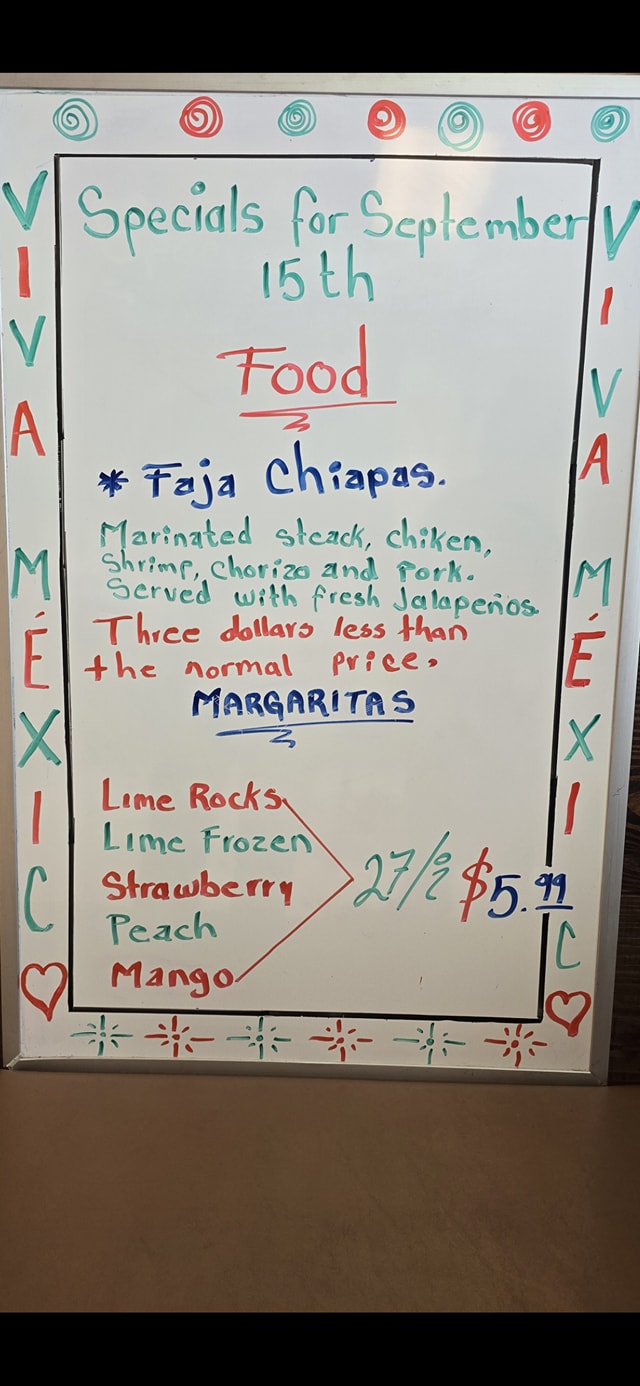 Specials for September
15th
Food
* Faja Chiapas.
Marinated steack, chiken,
Shrimp, chorizo and Pork.
Served with fresh Jalapeños.
Three dollars less than
the normal price.
MARGARITAS
Lime Rocks
Lime Frozen
Strawberry
Peach
Mango
$5.99
VIVA MÉXIC
VIVA MÉXIC